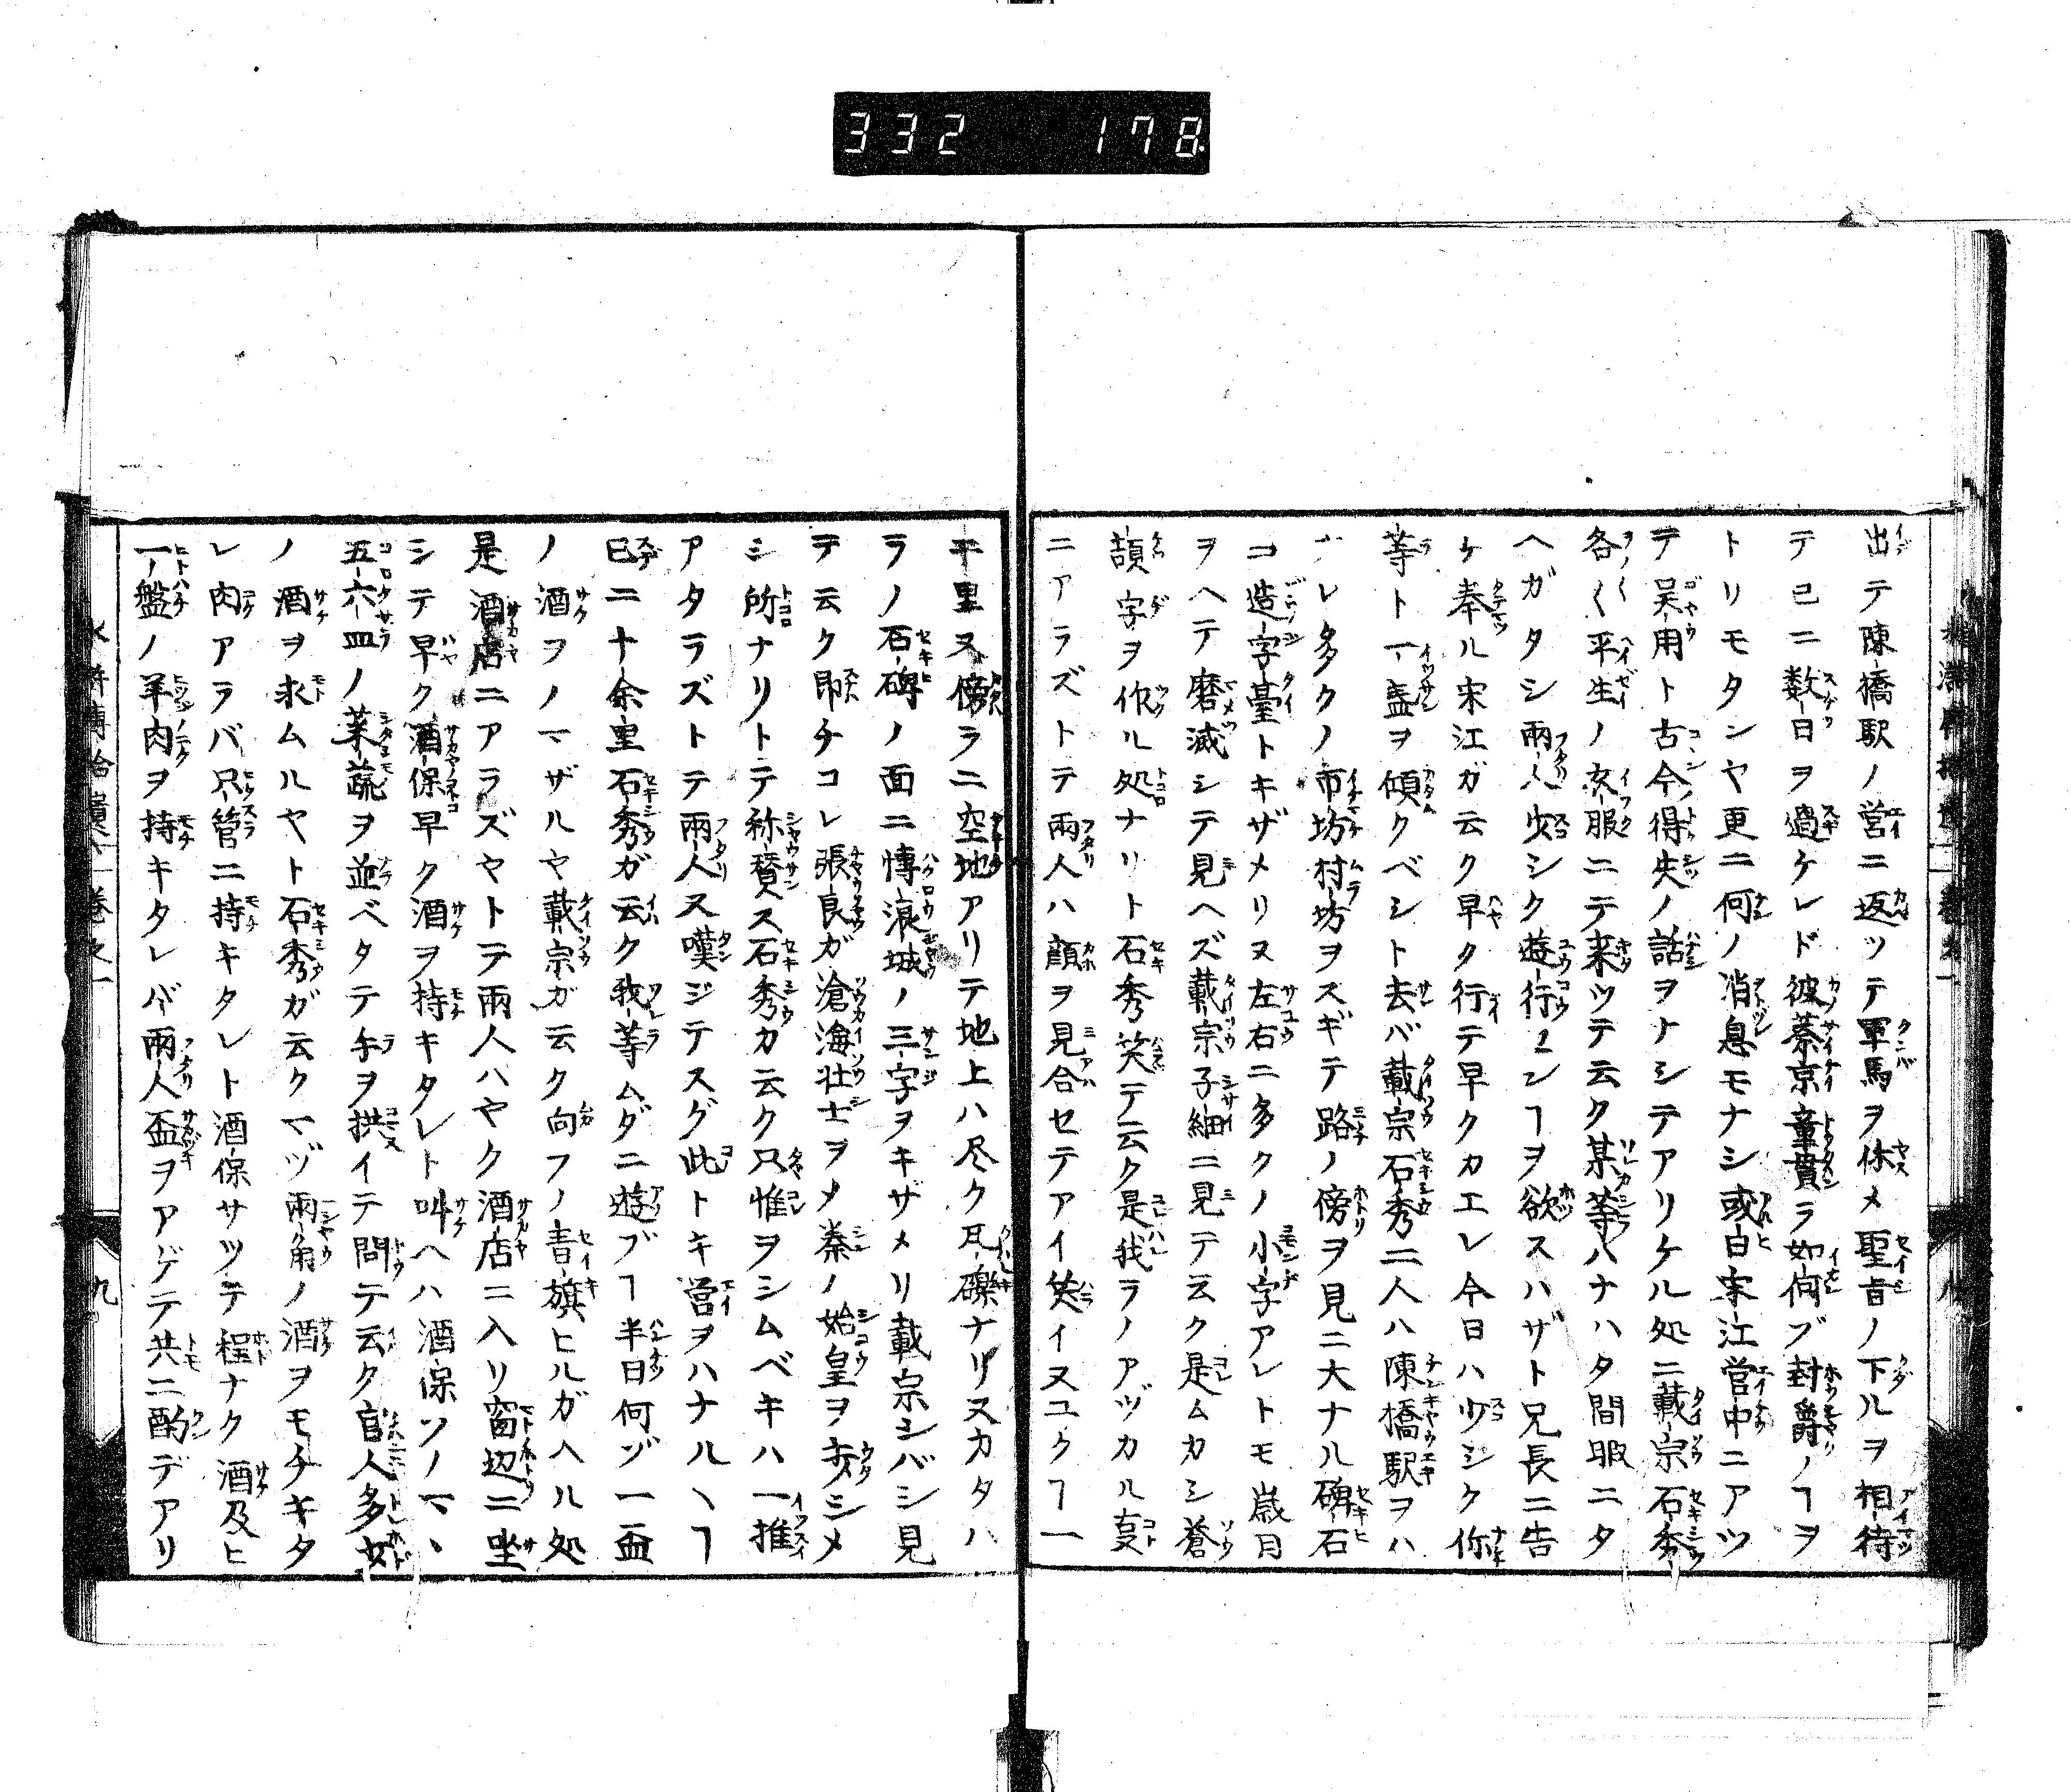 332 178
出テ陳橋駅ノ営ニ返ツテ軍馬ヲ休メ聖旨ノ下ルヲ相待
テ已ニ数日ヲ過ケレド彼蔡京童貫ラ如何ゾ封爵ノヿヲ
トリモタンヤ更ニ何ノ消息モナシ或日宋江営中ニアツ
テ呉用ト古今得失ノ話ヲナシテアリケル処ニ戴宗石秀
各〱平生ノ衣服ニテ来ツテ云ク某等ハナハタ間暇ニタ
ヘガタシ兩人少シク遊行センヿヲ欲スハザト兄長ニ告
ケ奉ル宋江ガ云ク早ク行テ早クカエレ今日ハ少シク你
等ト一盞ヲ傾クベシト去バ戴宗石秀二人ハ陳橋駅ヲハ
ナレ多クノ市坊村坊ヲスギテ路ノ傍ヲ見ニ大ナル碑石
コ造字臺トキザメリ又左右ニ多クノ小字アレトモ歳月
ヲヘテ磨滅シテ見ヘズ戴宗子細ニ見テ云ク是ムカシ蒼
頡字ヲ作ル処ナリト石秀笑テ云ク是我ラノアヅカル㕝
ニアラズトテ兩人ハ顔ヲ見合セテアイ笑イヌユクヿ一
千里又傍ラニ空地アリテ地上ハ尽ク瓦礫ナリ又カタハ
ラノ石碑ノ面ニ博浪城ノ三字ヲキザメリ戴宗シバシ見
テ云ク即チコレ張良ガ滄海壮士ヲメ秦ノ始皇ヲ歩シメ
シ所ナリトテ称賛ス石秀カ云ク只惟ヲシムベキハ一推
アタラズトテ兩人又嘆ジテスグ此トキ営ヲハナルヽヿ
已ニ十余里石秀ガ云ク我等ムダニ遊ブヿ半日何ゾ一盃
ノ酒ヲノマザルヤ戴宗ガ云ク向フノ青旗ヒルガヘル処
是酒店ニアラズヤトテ兩人ハヤク酒店ニ入リ窗辺ニ坐
シテ早ク酒保早ク酒ヲ持キタレト叫ヘハ酒保ソノマヽ
五六皿ノ菜蔬ヲ並ベタテ手ヲ拱イテ問テ云ク官人多少
ノ酒ヲ求ムルヤト石秀ガ云クマヅ兩角ノ酒ヲモチキタ
レ肉アラバ只管ニ持キタレト酒保サツテ程ナク酒及ヒ
一盤ノ羊肉ヲ持キタレバ兩人盃ヲアゲテ共ニ酌デアリ
水滸傳拾遺 巻之一 九